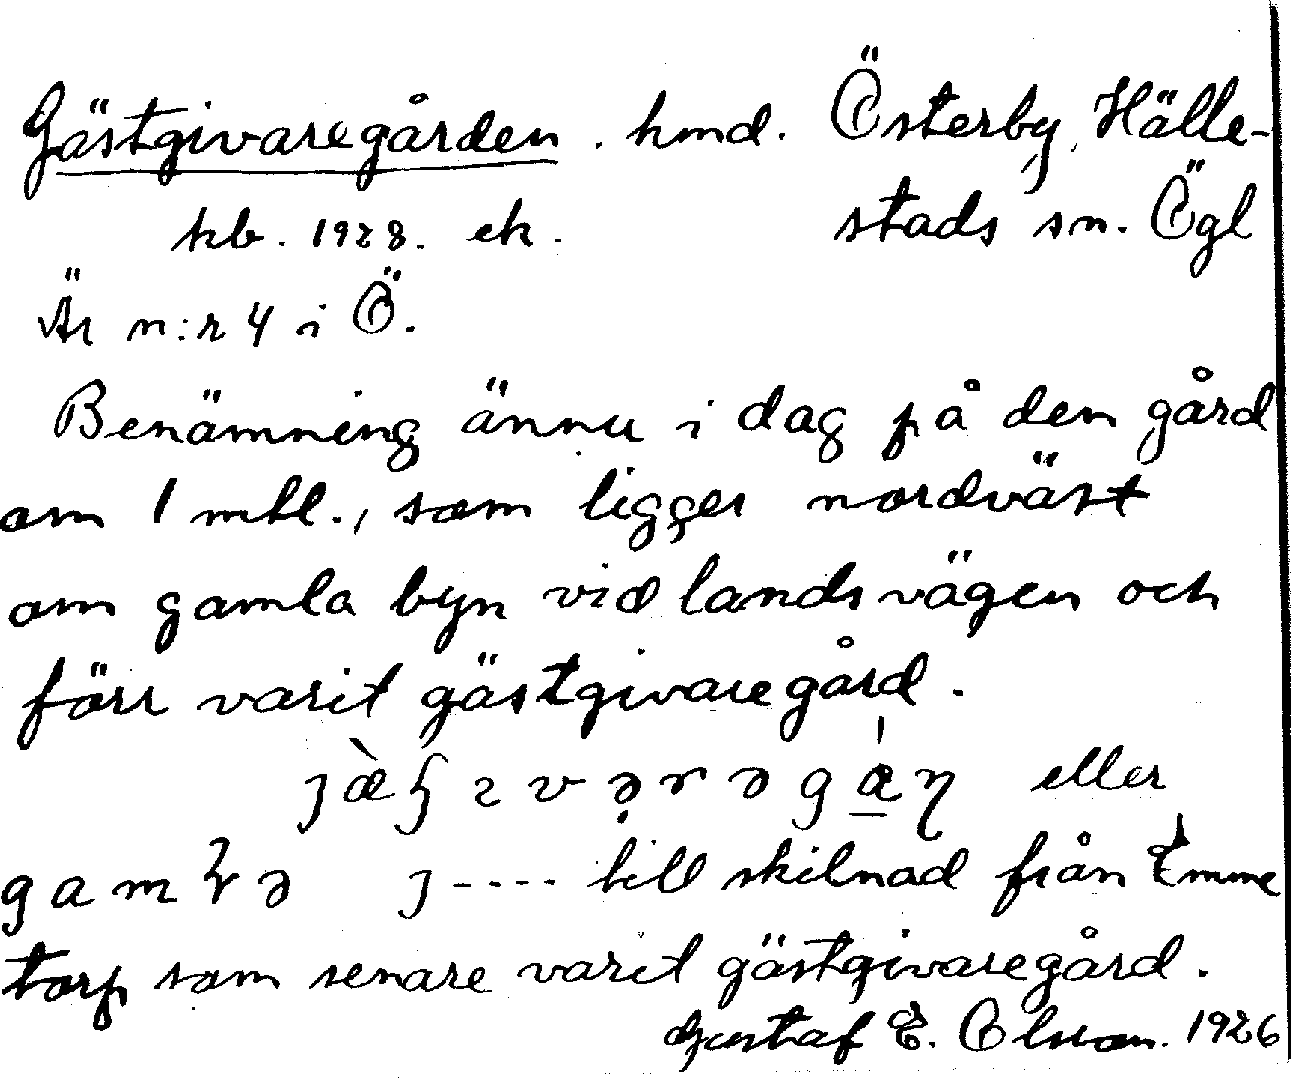 Gästgivaregården. hmd. Österby, Hälle-
kb. 1928. ek. stads sn. Ögl
Är n:r 4 i Ö.
Benämning ännu i dag på den gård
om 1 mtl., som ligger nordväst
om gamla byn vid landsvägen och
förr varit gästgivaregård.
eller
j---- till skilnad från Emme
torp som senare varit gästgivaregård.
Gustaf E. Olsson. 1926